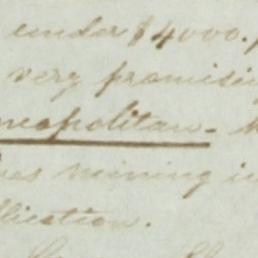 under $4000.
very promisin
neapolitan -
has mining i
llication.